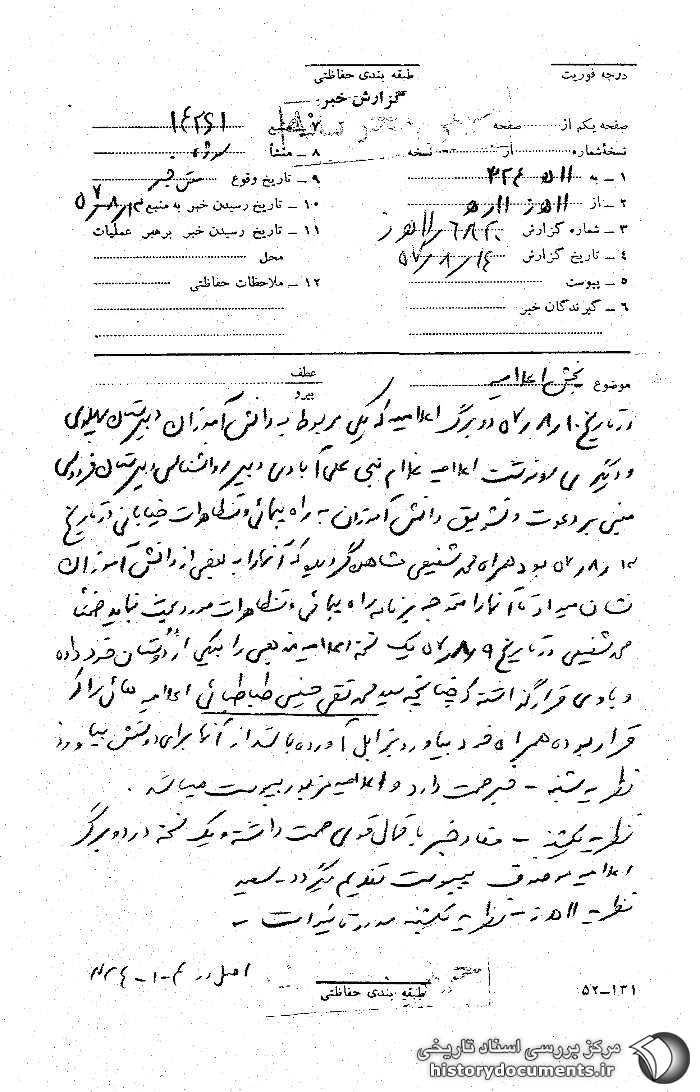 درجه فوریت
طبقه بندی حفاظتی
گزارش خبر:
صفحه یکم از صفحه
نسخه شماره از نسخه
۱ ـ به ۵۱۱ ۳۲۴
۲ ـ از
۳ ـ شماره گزارش
۴ ـ تاریخ گزارش ۵۷/۸/۱۴
۵ ـ پیوست
۶ ـ گیرندگان خبر
۷ منبع ۱۴۲۶۱
۸ ـ منشأ
۹ ـ تاریخ وقوع متن خبر
۱۰ ـ تاریخ رسیدن خبر به منبع
۱۱ ـ تاریخ رسیدن خبر برهبر عملیات
محل
۱۲ ـ ملاحظات حفاظتی
موضوع پخش اعلامیه
عطف
پیرو
در تاریخ ۵۷/۸/۱۰ دو برگ اعلامیه که یکی مربوط به دانش آموزان دبیرستان پهلوی
و دیگری اعلامیه غلام نبی علی آبادی دبیر روانشناسی دبیرستان فردوسی
مبنی بر دعوت و تشویق دانش آموزان به راه پیمائی و تظاهرات خیابانی در تاریخ
۵۷/۸/ بود همراه محمد شفیعی مشاهده گردید که آنها را به بعضی از دانش آموزان
نشان میداد تا آنها را متوجه برنامه راه پیمائی و تظاهرات مورد بحث نماید ضمناً
محمد شفیعی در تاریخ ۵۷/۸/۹ یک نسخه اعلامیه مذهبی را بیکی از دوستان خود داده
و با وی قرار گذاشته که چنانچه سید محمد تقی حسینی طباطبائی اعلامیه هائی را که
قرار بوده همراه خود بیاورد بزابل آورده باشد از آنها برای دوستش بیاورد
نظریه شنبه ـ خبر صحت دارد و اعلامیه مزبور پیوست میباشد.
نظریه یکشنبه ـ مفاد خبر باحتمال قوی صحت داشته و یک نسخه در دو برگ
اعلامیه پیوست تقدیم میگردد ـ سعید
نظریه ۱۱ هـ ز ـ نظریه یکشنبه مورد تائید است ـ
اصل در
طبقه بندی حفاظتی
۵۲ـ۱۳۱
مرکز بررسی اسناد تاریخی
historydocuments.ir